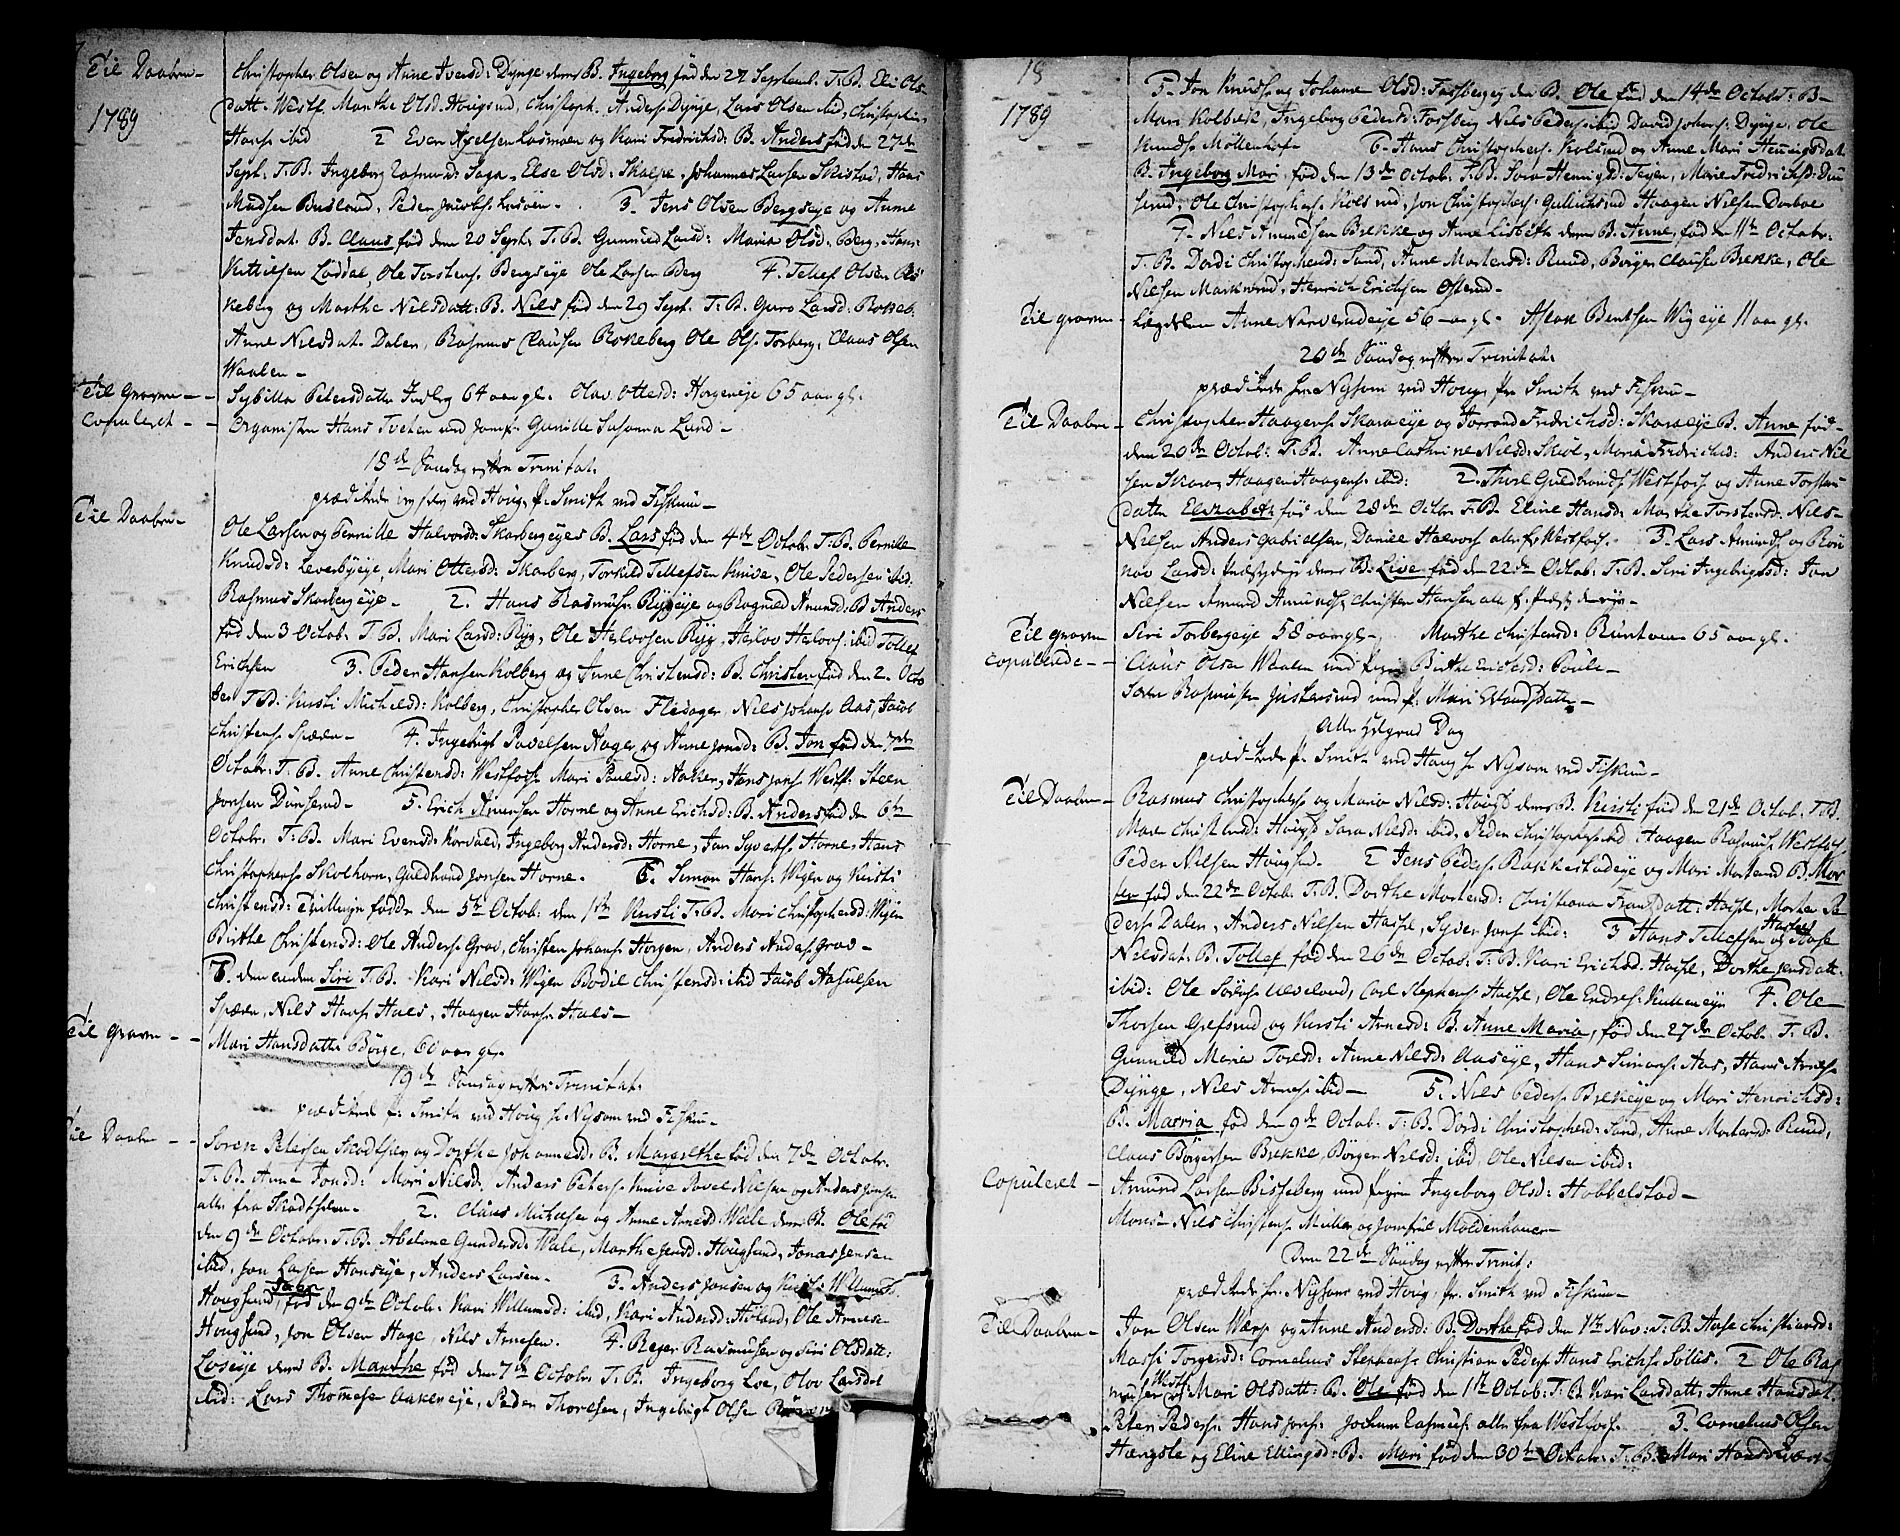 Til Daaben
1789
Christopher Olsen og Anne Iversd: Dynge deres B. Ingeborg fød den 27 Septemb. T.B. Eli Ols
datt. Westf. Marthe Olsd. Hougsund, Christoph. Anders: Dynge, Lars Olsen ibid, Christopher
Hans: ibid 2 Even Axelsen Lasmoen og Kari Fredrichsd: B. Anders fød den 27de
Sept. T.B. Ingeborg Rasmusd: Saga, Else Olsd: Skalpe, Johannes Larsen Skistad, Hans
Madsen Busland, Peder Jacobs: 3. Jens Olsen Bergseye og Anne
Jensdat. B. Claus fød den 20 Sept. T.B. Gunnild Larsd: Maria Olsd: Berg, Hans
Kittilsen Løddal, Ole Torstens: Bergseye Ole Larsen Berg 4. Tellef Olsen Ros
keberg og Marthe Nilsdatt: B. Nils fød den 29 Sept. T.B. Guro Larsd: Rokeb.
Anne Nilsdat. Dalen, Rasmus Clausen Rokeberg Ole Ols: Torberg, Claus Olsen
Waalen
Til graven
Sybilla Petersdatter 64 aar gl. Olav Ottersd: Horgeneje 65 aar gl.
Copuleret
Organisten Hans Tveten med Jomf: Gunilde Susanna Lund
18de Søndag efter Trinitat:
prædikede ved Houg, hr. Smith ved Fiskum
Til Daaben
Ole Larsen og Pernille Halvorsd: Skarbergeyes B. Lars fød den 4de Octob: T.B. Pernille
Knudsd: Leverbyeye, Mari Ottersd: Skarberg, Torkild Tellefsen Knive, Ole Pedersen ibid.
Rasmus Skarbergeye 2. Hans Rasmus: Rygeye og Ragnild Amunsd: B. Anders
fød den 3 Octob: T.B. Mari Larsd: Ryg, Ole Halvorsen Ryg, Halvor Halvors: ibid Tollef
Erichsen 3. Peder Hansen Kolberg og Anne Christensd: B. Christen fød den 2. Octo
ber T.B. Kirsti Michelsd: Kolberg, Christopher Olsen Fledager, Nils Johans: Aas, Jacob
Christens: Spæren 4. Ingebrigt Povelsen Aager og Anne Jonsd: B. Jon fød den 7de
Octobr: T.B. Anne Christensd: Westfos: Mari Paulsd: Aaker, Hans Jons: Westf: Steen
Jonsen Dunserud 5. Erich Amunsen Horne og Anne Erichsd: B. Anders fød den 6te
Octobr. T.B. Mari Evensd: Korvald, Ingeborg Andersd: Horne, Jon Syverts: Horne, Hans
Christophers: Skolhorn, Guldbrand Jonsen Horne. 6. Simon Hans: Wigen og Kirsti
Christensd: Tvillinger fødde den 5te Octob: den 1ste Kirsti T.B. Mari Christophersd: Wigen
Birthe Christensd: Ole Anders: Grav, Christen Johans: Horgen, Anders Anders: Grav
7. den anden Siri T.B. Kari Nilsd: Wigen Bodil Christensd: ibid Jacob Aasulsen
Spæren, Nils Hans: Haes, Haagen Hans: Haes
Til graven
Mari Hansdatter Børge, 60 aar gl.
19de Søndag efter Trinitat:
prædikede hr. Smith ved Houg hr Nysom ved Fiskum
Til Daaben
Soren Petersen Skotselv og Dorthe Johannesd: B. Marethe fød den 7de Octobr.
T.B. Anne Jonsd: Mari Nilsd: Anders Peters: Knive Povel Nilsen og Anders Jonsen
alle fra Skotselven 2. Claus Michelsen og Anne Arnesd Wale deres B. Ole fød
den 9de Octobr: T.B. Abelone Gundersd: Wale, Marthe Jensd: Hougsund, Jonas Jensen
ibid, Jon Larsen Hanseye, Anders Larsen 3. Anders Jonsen og Kirsti Willumsd.
Hougsund, fød den 9de Octobr: Kari Willumsd: ibid, Kari Andersd: Høland, Ole Arnesen
Hougsund, Jon Olsen Hage, Nils Arnesen. 4. Reyer Rasmussen og Siri Olsdatt:
Loseye deres B. Marthe fød den 7de Octobr. T.B. Ingeborg Loe, Olov Larsdat
ibid: Lars Thomesen Aakereeje, Peder Thoresen, Ingebrigt Olsen
18
1789
5. Jon Knuds: og Johanne Olsd: Fossbergey den B. Ole fød den 14de Octobr: T.B.
Mari Kolbræk, Ingeborg Pedersd: Fossberg Nils Peders: ibid David Johans: Dynge, Ole
Knuds: Møllenhof 6. Hans Christophers: Kolsrud og Anne Mari Henrigsdat
B. Ingeborg Mari, fød den 13de Octob. T.B. Sara Henrigsd: Teyen, Marie Fredrichsd: Dun
serud, Ole Christophers: Kolsrud, Jon Christophers: Gulliksrud Haagen Nilsen Dorboe
7. Nils Amundsen Brekke og Anne Lisbeth deres B. Anne, fød den 11te Octobr:
T.B. Dordi Christophersd: Sand, Anne Mortensd: Ruud, Børger Clausen Brekke, Ole
Nilsen Markerud, Henrich Erichsen Ofsterud
Til graven
Lægdslem Anne Narverudeye 56 aar gl. Aslak Bentsen Wigeye 11 aar gl.
20de Søndag efter Trinitat:
prædikede hr. Nysom ved Houg, hr. Smith ved Fiskum
Til Daaben
Christopher Haagens: Skaraeye og Jorrand Fredrichsd: Skaraeye B. Anne fød
den 20de Octob: T.B. Anne Cathrine Nilsd: Skiøl, Maria Fredrichsd: Anders Nil
sen Skara, Haagen Haagens: ibid: 2. Thore Guldbrands: Westfos: og Anne Torstens
datter Elizabeth fød den 28de Octbr T.B. Eline Hansd: Marthe Torstensd: Nils
Nilsen Anders Gabrielsen, Daniel Halvors: alle fr Westfos. 3. Lars Amunds: og Røn
nov Larsd: deres B. Live fød den 22de Octob: T.B. Siri Ingebrigtsd: Jon
Nilsen Amund Amunds: Christen Hansen alle f.
Til graven
Siri Torbergeye 58 aar gl. Marthe Christensd: Burtoum 65 aar gl.
Copulerede
Claus Olsen Waalen med pigen Birthe Ericsd: Poule
Soren Rasmusen Justerud med p: Mari Ewaarsdatter
Alle Helgens Dag
prædikede hr. Smith ved Houg hr Nysom ved Fiskum
Til Daaben
Rasmus Christophers: og Maria Nilsd: Hougs: deres B. Kirsti fød den 21de Octob. T.B.
Mari Christensd: Hougs: Sara Nilsd: ibid, Peder Christophers: ibid Haagen Rasmus: Westfos
Peder Nilsen Hougsund. 2 Jens Peders: Rakkestadeye og Mari Mortensd B. Mor
ten fød den 22de Octob: T.B. Dorthe Mortensd: Christiana Fransdatt: Hasle, Morten Pe
ders: Dalen, Anders Nilsen Hasle, Syver Jons: ibid: 3 Hans Tellefsen Hasle og Aase
Nilsdat. B. Tollef fød den 26de Octob: T.B. Kari Erichsd. Hasle, Dorthe Jensdatt:
ibid: Ole Sørens: Ulveland, Carl Stephens: Hasle, Ole Endres: Kulleneye 4. Ole
Thorsen Grefsrud og Kirsti Arnesd: B. Anne Maria, fød den 27de Octob: T.B.
Gunnild Maria Toresd: Anne Nilsd: Aaseye, Hans Simons: Aas, Hans Arnes:
Dynge, Nils Arnes: ibid 5. Nils Peders: Brekeye og Mari Henrichsd:
B. Maria fød den 9de Octob: T.B. Dordi Christophersd: Sand, Anne Mortensd: Ruud,
Claus Børgersen Brekke, Børger Nilsd: ibid, Ole Nilsen ibid:
Copuleret
Amund Larsen Bisseberg med pigen Ingeborg Olsd: Hobbelstad
Mons: Nils Christens: Muller og Jomfrue Moldenhauer
Den 22de Søndag efter Trinit:
prædikede hr. Nysom ved Houg, hr. Smith ved Fiskum
Til Daaben
Jon Olsen Wærp og Anne Andersd: B. Dorthe fød den 1ste Nov: T.B. Aase Christiansd:
Massi Torgersd: Cornelius Stephens: Christian Peders: Hans Erichs: Sollis. 2 Ole Ras
musen Westf: og Mari Olsdatt: B. Ole fød den 1ste Octob: T.B. Kari Larsdatt: Anne Hansdat.
Peter Peders: Hans Jons: Jochum Rasmus: alle fra Westfos: 3. Cornelius Olsen
Hængsle og Eline Ellingsd: B. Mari fød den 30te Octobr: T.B. Mari Hansd